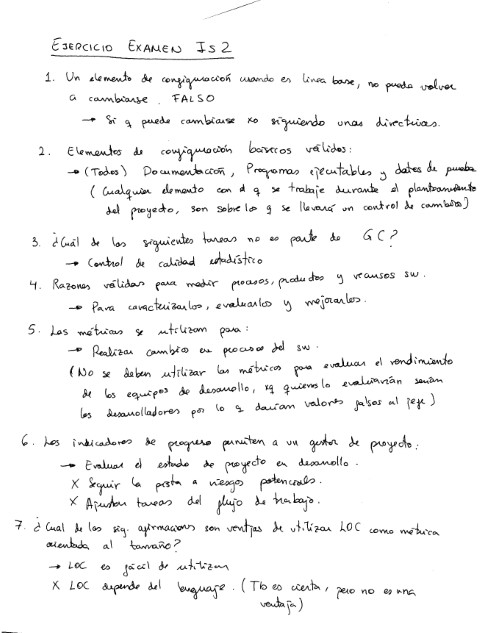 EJERCICIO EXAMEN IS2
1. Un elemento de configuración cuando es línea base, no puede volver
a cambiarse. FALSO
→ Si q puede cambiarse xo siguiendo unas directrices.
2. Elementos de configuración básicos válidos:
→ (Todos) Documentación, Programas ejecutables y datos de prueba
(Cualquier elemento con el q se trabaje durante el planteamiento
del proyecto, son sobre los q se llevará un control de cambios)
3. ¿Cuál de las siguientes tareas no es parte de GC?
→ Control de calidad estadístico
4. Razones válidas para medir procesos, productos y recursos sw.
→ Para caracterizarlos, evaluarlos y mejorarlos.
5. Las métricas se utilizan para:
→ Realizar cambios en procesos del sw.
(No se deben utilizar las métricas para evaluar el rendimiento
de los equipos de desarrollo, xq quienes lo evaluarían serían
los desarrolladores por lo q darían valores falsos al jefe)
6. Los indicadores de progreso permiten a un gestor de proyecto:
→ Evaluar el estado de proyecto en desarrollo.
X Seguir la pista a riesgos potenciales.
X Ajustar tareas del flujo de trabajo.
7. ¿Cual de las sig. afirmaciones son ventajas de utilizar LOC como métrica
orientada al tamaño?
→ LOC es fácil de utilizar
X LOC depende del lenguaje. (Tb es cierta, pero no es una
ventaja)